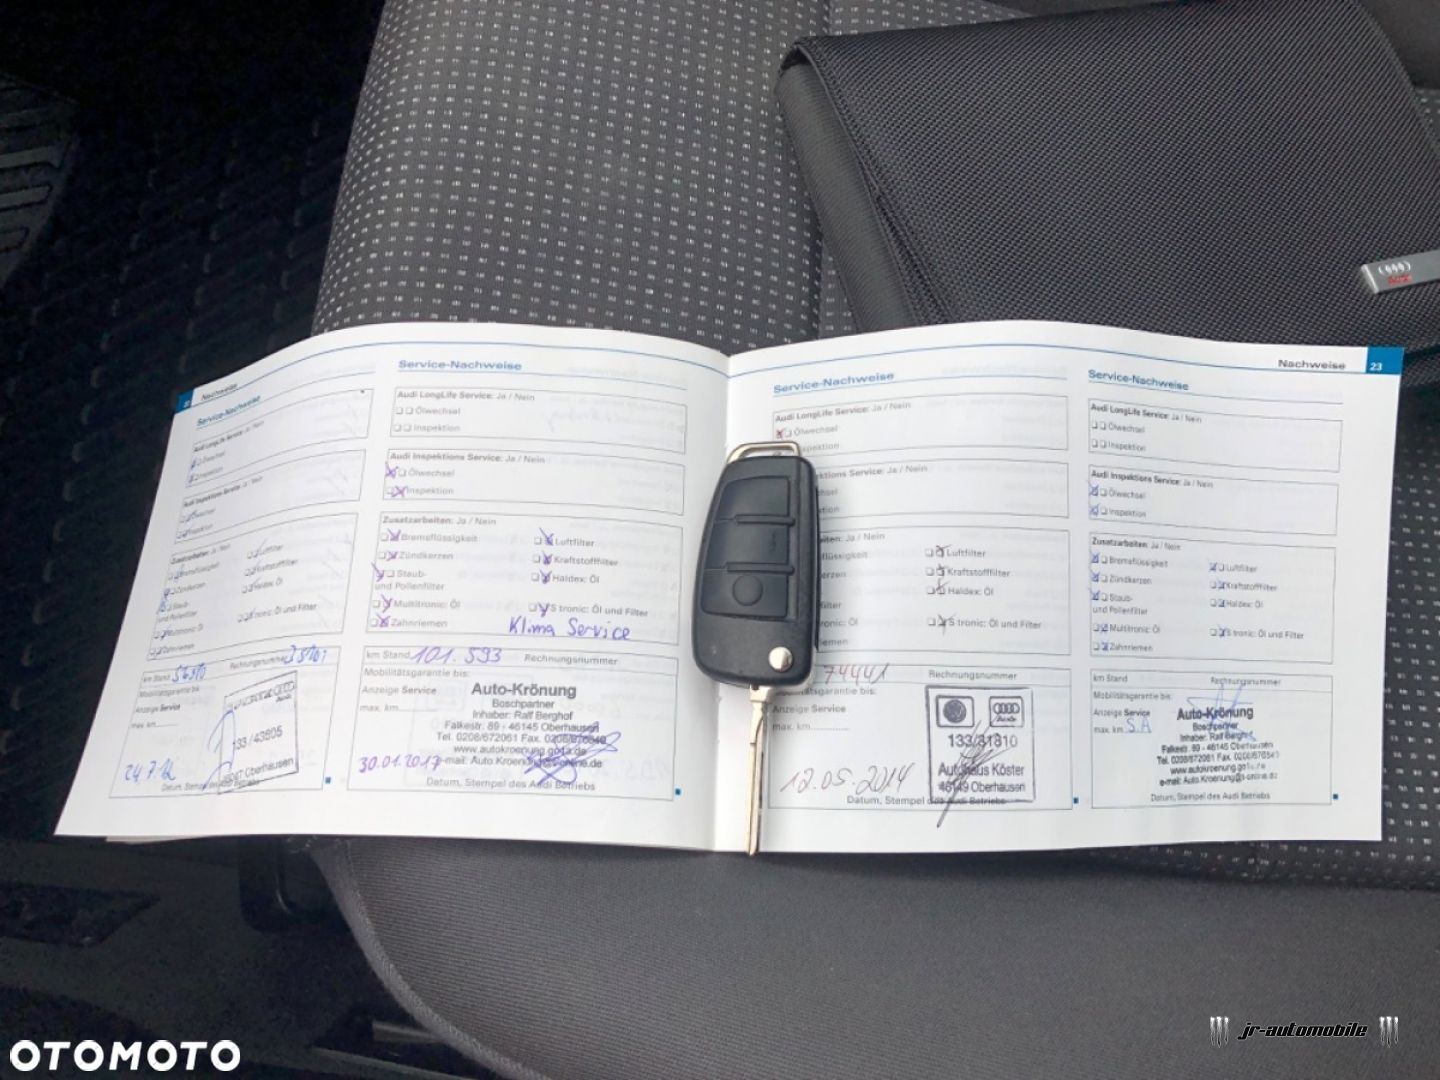 22 Nachweise
Service-Nachweise
Audi LongLife Service: Ja / Nein
Ölwechsel
Inspektion
Audi Inspektions Service: Ja / Nein
Ölwechsel
Inspektion
Zusatzarbeiten: Ja / Nein
Bremsflüssigkeit
Luftfilter
Zündkerzen
Kraftstofffilter
Staub-
und Pollenfilter
Haldex: Öl
Multitronic: Öl
S tronic: Öl und Filter
Zahnriemen
km Stand
Rechnungsnummer
Mobilitätsgarantie bis:
Anzeige Service
max. km
133/43805
46047 Oberhausen
24.7.12
Datum, Stempel des Audi Betriebs
Service-Nachweise
Audi LongLife Service: Ja / Nein
Ölwechsel
Inspektion
Audi Inspektions Service: Ja / Nein
Ölwechsel
Inspektion
Zusatzarbeiten: Ja / Nein
Bremsflüssigkeit
Luftfilter
Zündkerzen
Kraftstofffilter
Staub-
und Pollenfilter
Haldex: Öl
Multitronic: Öl
S tronic: Öl und Filter
Zahnriemen
Klima Service
km Stand 101.593 Rechnungsnummer
Mobilitätsgarantie bis:
Anzeige Service
max. km
Auto-Krönung
Boschpartner
Inhaber: Ralf Berghof
Falkestr. 89 - 46145 Oberhausen
Tel. 0208/672061 Fax. 0208/876840
www.autokroenung.go1a.de
e-mail: Auto.Kroenung@t-online.de
30.01.2017
Datum, Stempel des Audi Betriebs
Service-Nachweise
Audi LongLife Service: Ja / Nein
Ölwechsel
spektion
ktions Service: Ja / Nein
chsel
ektion
iten: Ja / Nein
flüssigkeit
Luftfilter
erzen
Kraftstofffilter
Haldex: Öl
filter
ronic: Öl
S tronic: Öl und Filter
iemen
74441
Rechnungsnummer
ätsgarantie bis:
Anzeige Service
max. km
133/31810
Autohaus Köster
46149 Oberhausen
12.05.2014
Datum, Stempel des Audi Betriebs
Nachweise 23
Service-Nachweise
Audi LongLife Service: Ja / Nein
Ölwechsel
Inspektion
Audi Inspektions Service: Ja / Nein
Ölwechsel
Inspektion
Zusatzarbeiten: Ja / Nein
Bremsflüssigkeit
Luftfilter
Zündkerzen
Kraftstofffilter
Staub-
und Pollenfilter
Haldex: Öl
Multitronic: Öl
S tronic: Öl und Filter
Zahnriemen
km Stand
Rechnungsnummer
Mobilitätsgarantie bis:
Anzeige Service
max. km S.A
Auto-Krönung
Boschpartner
Inhaber: Ralf Berghof
Falkestr. 89 - 46145 Oberhausen
Tel. 0208/672061 Fax. 0208/876840
www.autokroenung.go1a.de
e-mail: Auto.Kroenung@t-online.de
Datum, Stempel des Audi Betriebs
OTOMOTO
jr-automobile